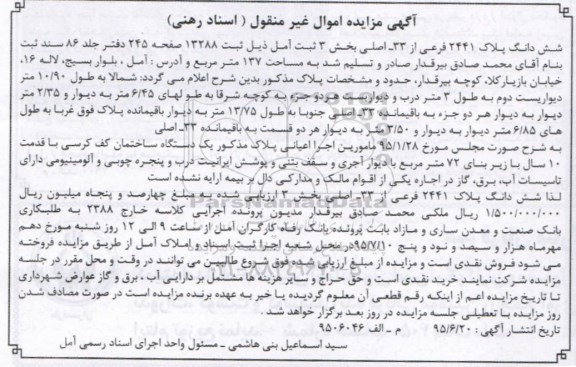 آگهی مزایده اموال غیر منقول ( اسناد رهنی)
شش دانگ پلاک ۲۴۴۱ فرعی از ۳۳ـ اصلی بخش ۳ ثبت آمل ذیل ثبت ۱۳۲۸۸ صفحه ۲۴۵ دفتر جلد ۸۶ سند ثبت
بنام آقای محمد صادق بیرقدار صادر و تسلیم شد به مساحت ۱۳۷ متر مربع و آدرس : آمل ، بلوار بسیج، لاله ۱۶،
خیابان بازیارکلا، کوچه بیرقدار، حدود و مشخصات پلاک مذکور بدین شرح اعلام می گردد: شمالا به طول ۱۰/۹۰ متر
دیواریست دوم به طول ۳ متر درب و دیواریست هر دو جزء به کوچه شرقا به طو لهای ۶/۴۵ متر به دیوار و ۲/۳۵ متر
دیوار به دیوار هر دو جزء به باقیمانده ۳۳ـ اصلی جنوبا به طول ۱۳/۷۵ متر به دیوار باقیمانده پلاک فوق غربا به طول
های ۶/۸۵ متر دیوار به دیوار و ۳/۵۰ متر به دیوار هر دو قسمت به باقیمانده ۳۳ـ اصلی
به شرح صورت مجلس مورخ ۹۵/۱/۲۸ مامورین اجرا اعیانی پلاک مذکور یک دستگاه ساختمان کف کرسی با قدمت
۱۰ سال با زیر بنای ۷۲ متر مربع با دیوار آجری و سقف بتنی و پوشش ایرانیت درب و پنجره چوبی و آلومینیومی دارای
تاسیسات آب، برق، گاز در اجاره یکی از اقوام مالک و مدارکی دال بر بیمه ارایه نشده است
لذا شش دانگ پلاک ۲۴۴۱ فرعی از ۳۳ـ اصلی بخش ۳ ارزیابی شده به مبلغ چهارصد و پنجاه میلیون ریال
۱/۵۰۰/۰۰۰/۰۰۰ ریال ملکی محمد صادق بیرقدار مدیون پرونده اجرایی کلاسه خارج ۲۳۸۸ به طلبکاری
بانک صنعت و معدن ساری و مازاد بابت پرونده بانک رفاه کارگران آمل از ساعت ۹ الی ۱۲ روز شنبه مورخ دهم
مهرماه هزار و سیصد و نود و پنج ۹۵/۷/۱۰ در محل شعبه اجرا ثبت اسناد و املاک آمل از طریق مزایده فروخته
می شود فروش نقدی است و مزایده از مبلغ ارزیابی شده فوق شروع طالبین می توانند در وقت و محل مقرر در جلسه
مزایده شرکت نمایند خرید نقدی است و حق حراج و سایر هزینه ها مشتمل بر دارایی آب ، برق و گاز عوارض شهرداری
تا تاریخ مزایده اعم از اینکه رقم قطعی آن معلوم گردیده یا خیر به عهده برنده مزایده است در صورت مصادف شدن
روز مزایده با تعطیلی جلسه مزایده در روز بعد برگزار خواهد شد .
تاریخ انتشار آگهی : ۹۵/۶/۲۰ م ـ الف ۹۵۰۶۰۴۶
سید اسماعیل بنی هاشمی ـ مسئول واحد اجرای اسناد رسمی آمل